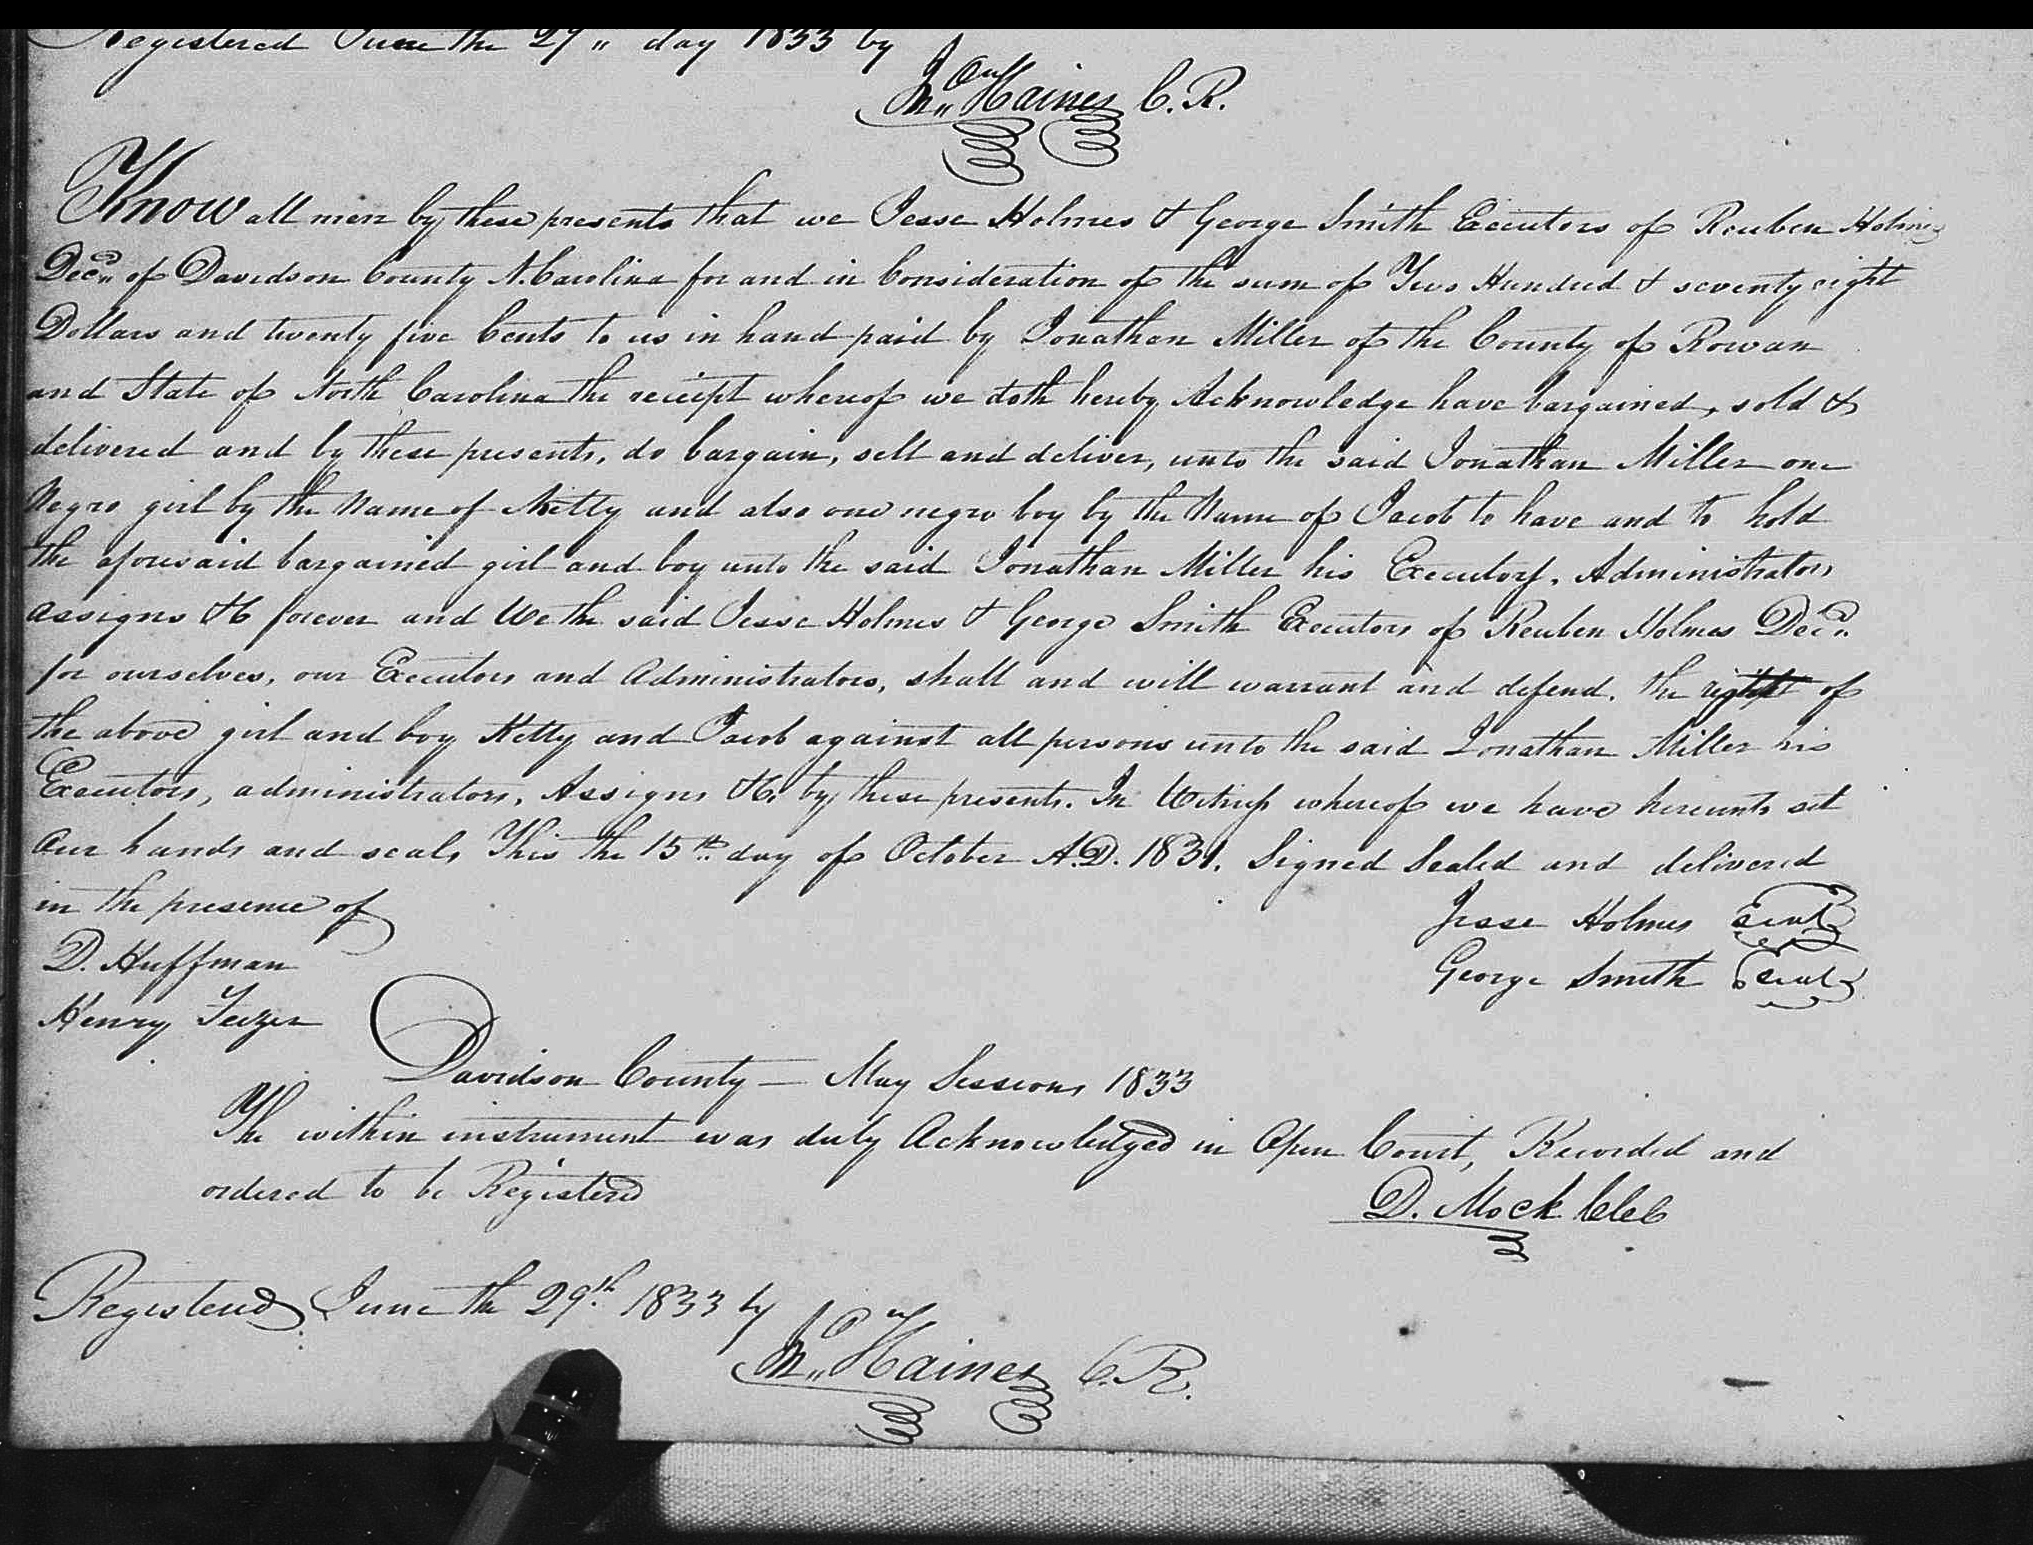 Registered June the 29 " day 1833 by
Jn° Haines C. R.
Know all men by these presents that we Jesse Holmes & George Smith Executors of Reuben Holmes
Decd of Davidson County N. Carolina for and in Consideration of the sum of Two Hundred & seventy eight
Dollars and twenty five Cents to us in hand paid by Jonathan Miller of the County of Rowan
and State of North Carolina the receipt whereof we doth hereby Acknowledge have bargained, sold &
delivered and by these presents, do bargain, sell and deliver, unto the said Jonathan Miller one
Negro girl by the Name of Ketty and also one negro boy by the Name of Jacob to have and to hold
the aforesaid bargained girl and boy unto the said Jonathan Miller his Executors, Administrators
assigns &c forever and We the said Jesse Holmes & George Smith Executors of Reuben Holmes Decd
for ourselves, our Executors and Administrators, shall and will warrant and defend, the right of
the above girl and boy Ketty and Jacob against all persons unto the said Jonathan Miller his
Executors, administrators, Assigns &c. by these presents. In Witness whereof we have hereunto set
our hands and seals This the 15th day of October A.D. 1831. Signed Sealed and delivered
in the presence of
Jesse Holmes Seal
D. Huffman
George Smith Seal
Henry
Davidson County — May Sessions 1833
The within instrument was duly Acknowledged in Open Court, Recorded and
ordered to be Registered
D. Mock
Registered June the 29th 1833 by
Jn° Haines C. R.